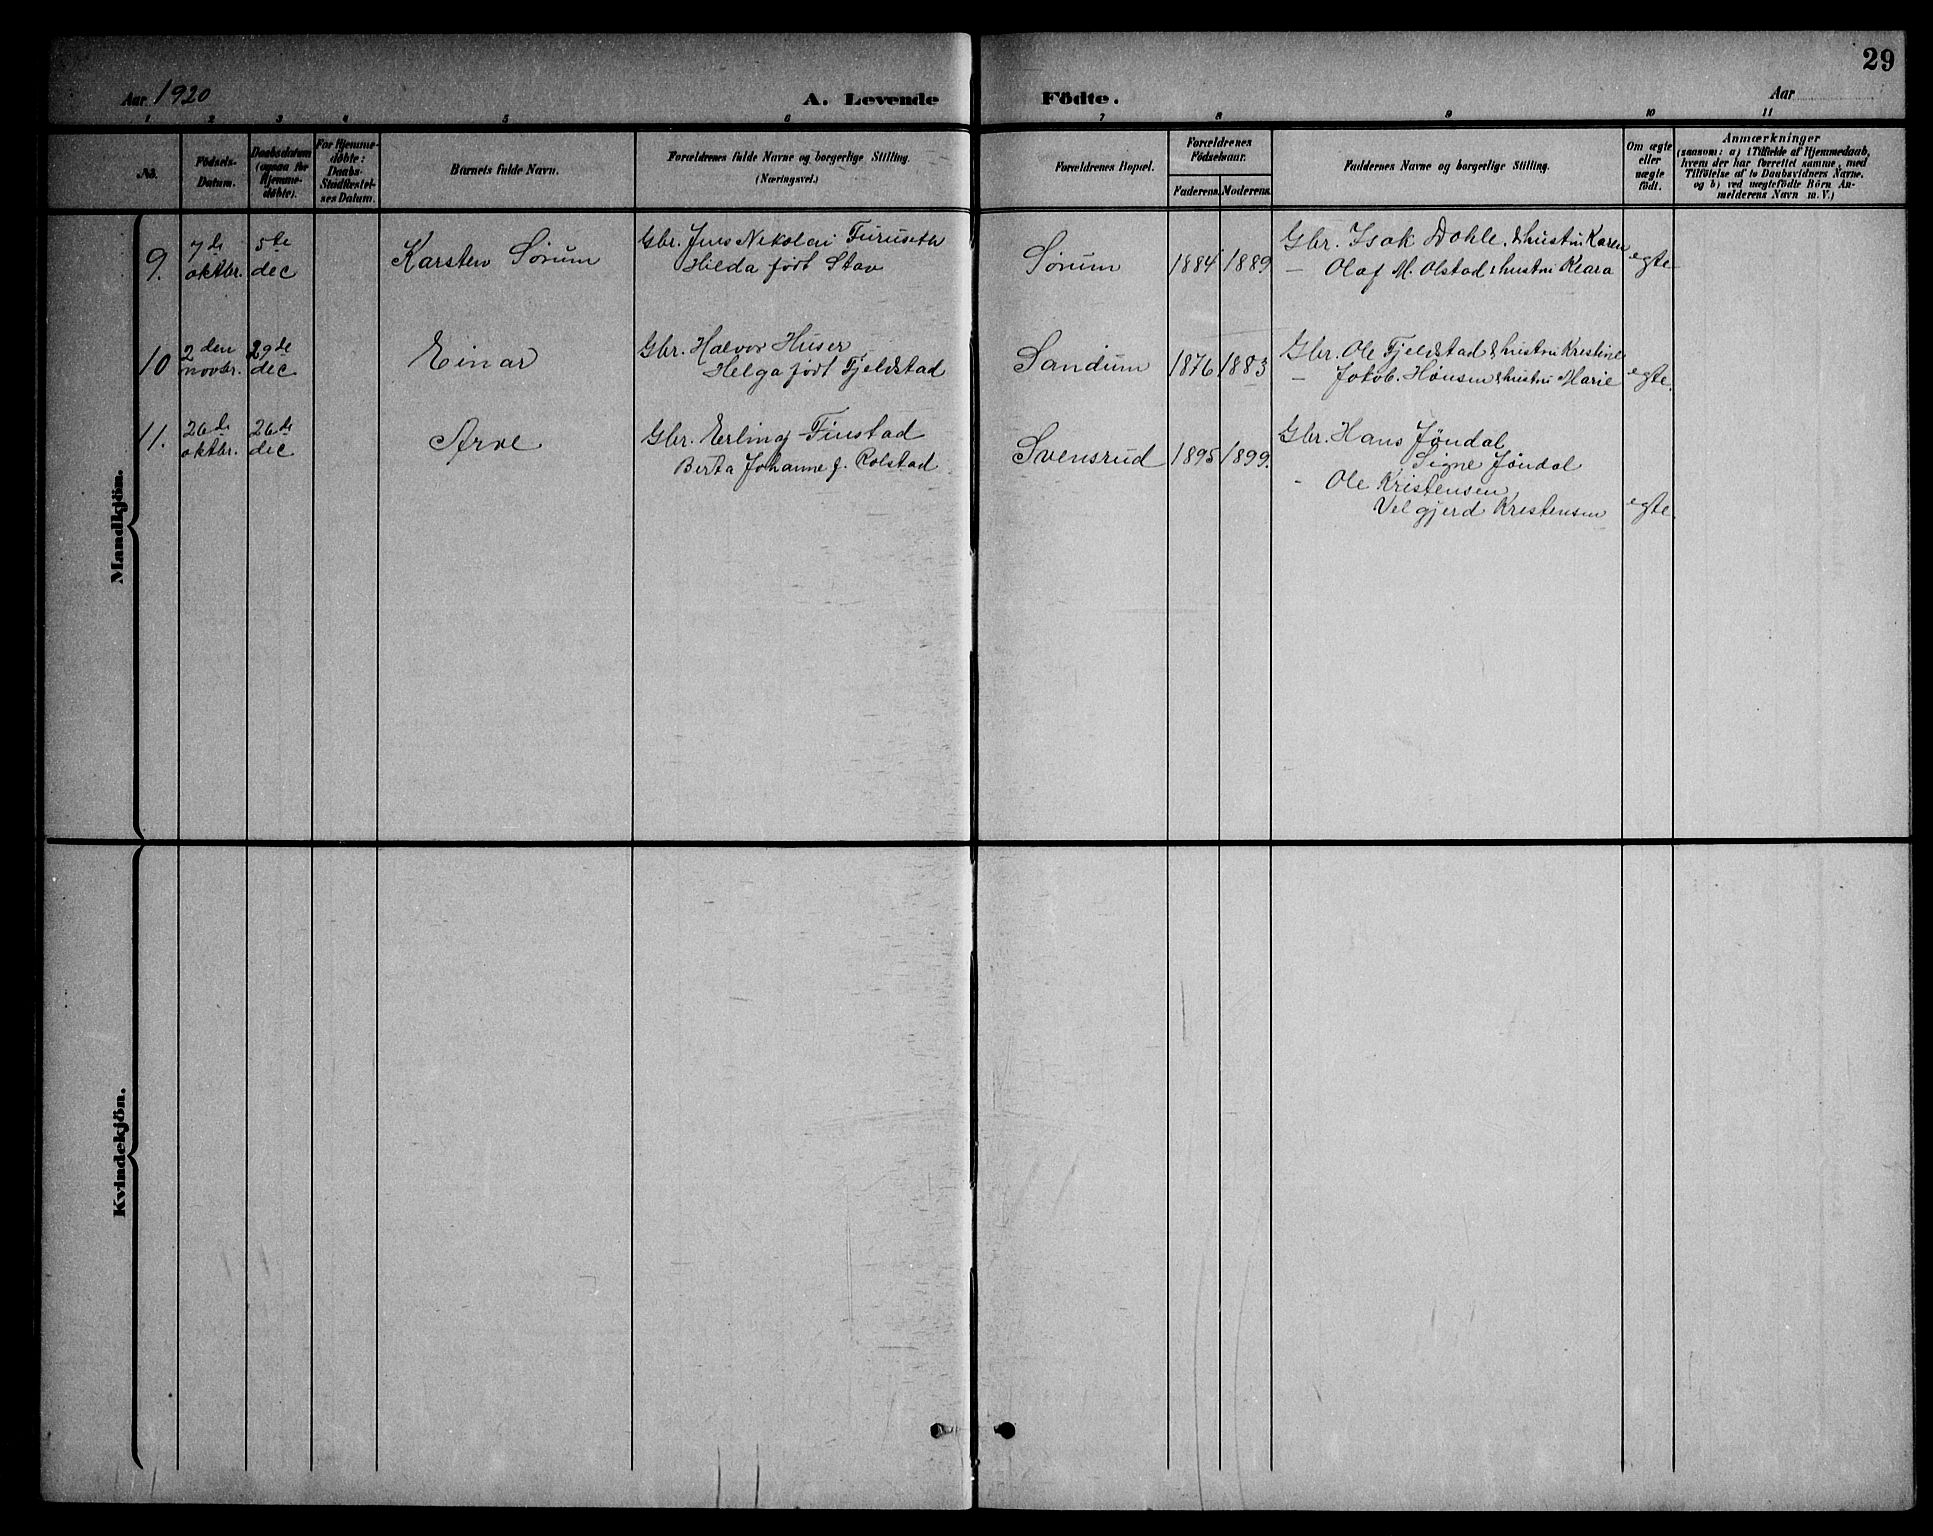 29
Aar 1920
A. Levende Födte.
Aar
1 2 3 4 5 6 7 8 9 10 11
No.
Födsels-
Datum.
Daabsdatum
(ogsaa for
Hjemme-
döbte).
For Hjemme-
döbte:
Daabs-
Stadfæstel-
ses Datum.
Barnets fulde Navn.
Forældrenes fulde Navne og borgerlige Stilling.
(Næringsvei.)
Forældrenes Bopæl.
Forældrenes
Födselsaar.
Faderens. Moderens.
Faddernes Navne og borgerlige Stilling.
Om ægte
eller
uægte
födt.
Anmærkninger
(saasom: a) i Tilfælde af Hjemmedaab,
hvem der har forrettet samme, med
Tilföielse af to Daabsvidners Navne,
og b) ved uægtefödte Börn An-
melderens Navn m. V.)
Mandkjön.
9. 7de oktbr. 5te dec Karsten Sørum Gbr. Jens Nikolai Furuseth
Hilda født Stav
Sørum 1884 1889 Gbr. Isak Dahle, & hustru Karen
— Olaf M. Olstad & hustru Klara egte
10 2den novbr. 29de dec Einar Gbr. Halvor Huser
Helga født Fjeldstad
Sandum 1876 1883 Gbr. Ole Fjeldstad & hustru Kristine
— Jakob. Hønsen & hustru Marie egte.
11. 26de oktbr. 26de dec Arve Gbr. Erling Finstad
Berta Johanne f. Rolstad
Svensrud 1895 1899. Gbr. Hans Jøndal
Signe Jøndal
- Ole Kristensen
Velgjerd Kristensen egte.
Kvindekjön.